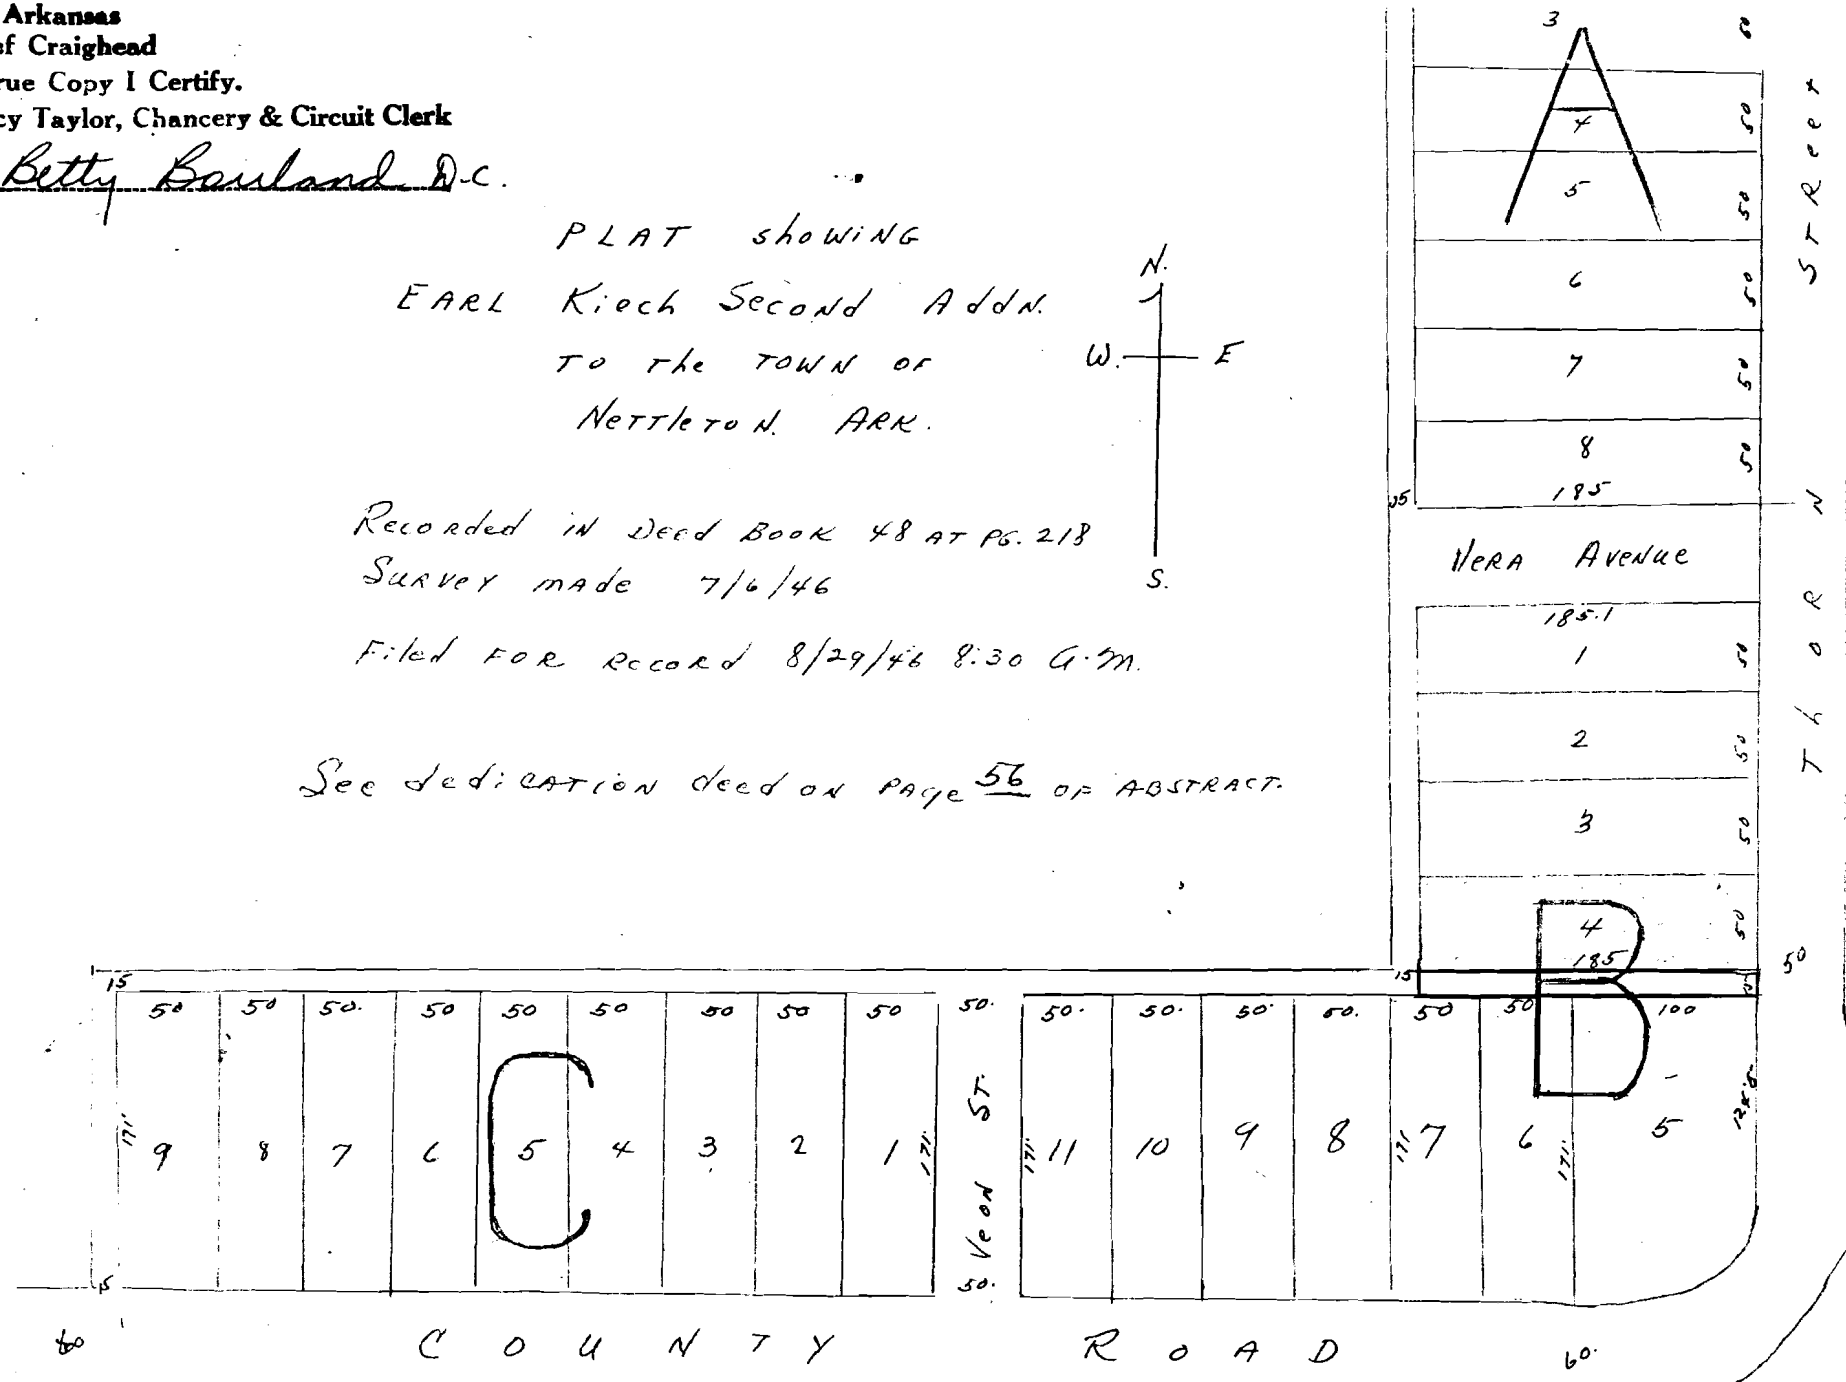 Arkansas
of Craighead
True Copy I Certify.
cy Taylor, Chancery & Circuit Clerk
Betty D.C.
PLAT showing
EARL Kiech Second Addn.
To The TOWN OF
NETTLETON. ARK.
N.
W. E
S.
Recorded in Deed BOOK 48 AT PG. 218
Survey made 7/6/46
Filed FOR Record 8/29/46 8:30 A.M.
See dedication deed on PAge 56 OF ABSTRACT.
A
3 50
4 50
5 50
6 50
7 50
8 50
185
15
STReeT
ThORN
VERA AVENUE
185.1
1 50
2 50
3 50
4 50
185
15 15 15 50
50 50 50. 50 50 50 50 50 50 50. 50. 50. 50. 50. 50 50 100
B
C
171' 9 8 7 6 5 4 3 2 1 171'
Veon ST.
171' 11 10 9 8 171' 7 6 171' 5
15 50.
60 COUNTY ROAD 60.